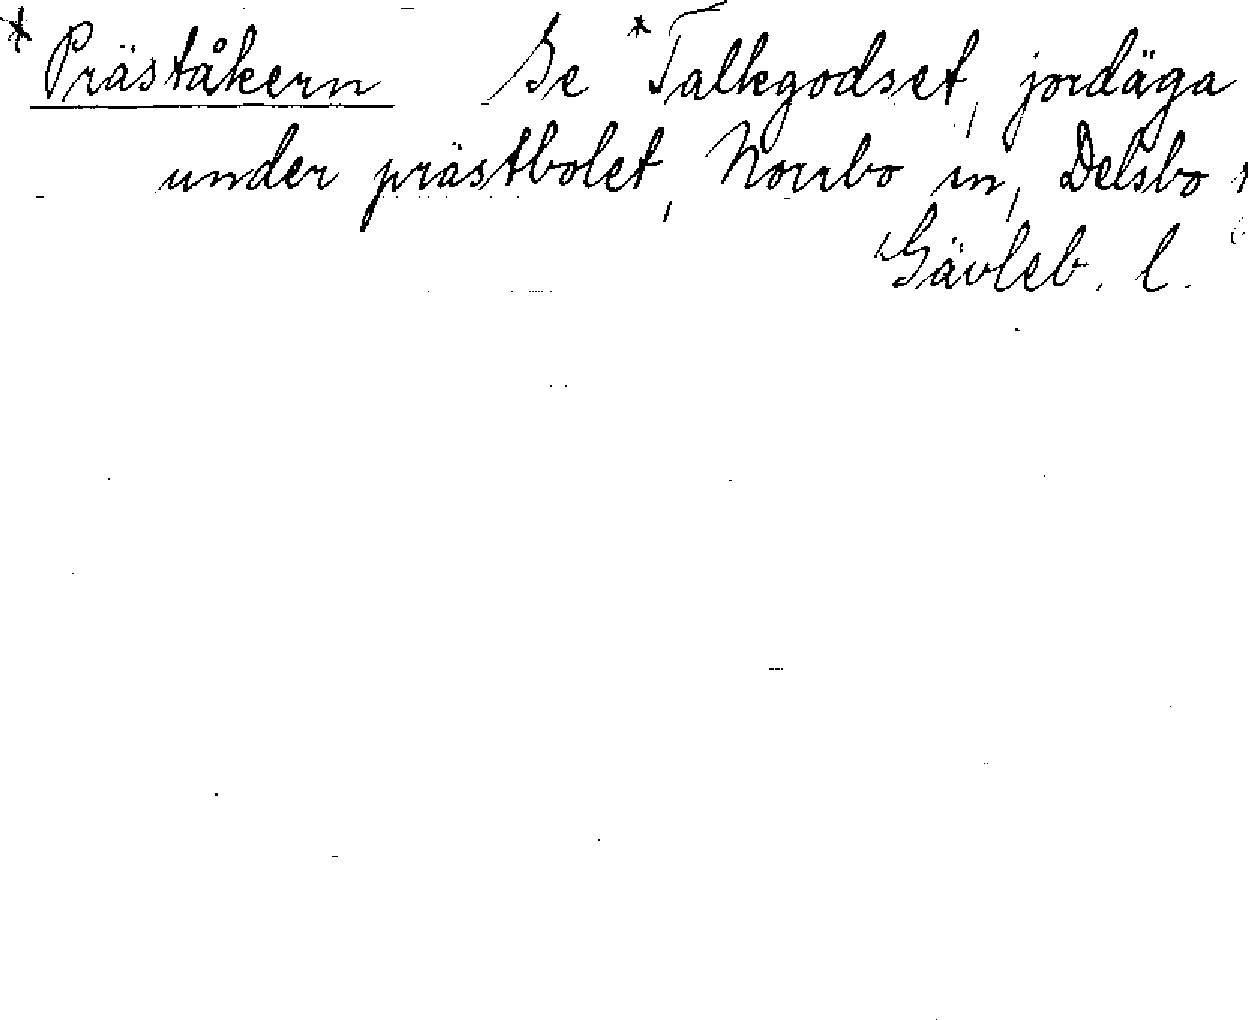 *Präståkern Se *Talkgodset, jordäga
under prästbolet, Norrbo sn, Delsbo
Gävleb. l.